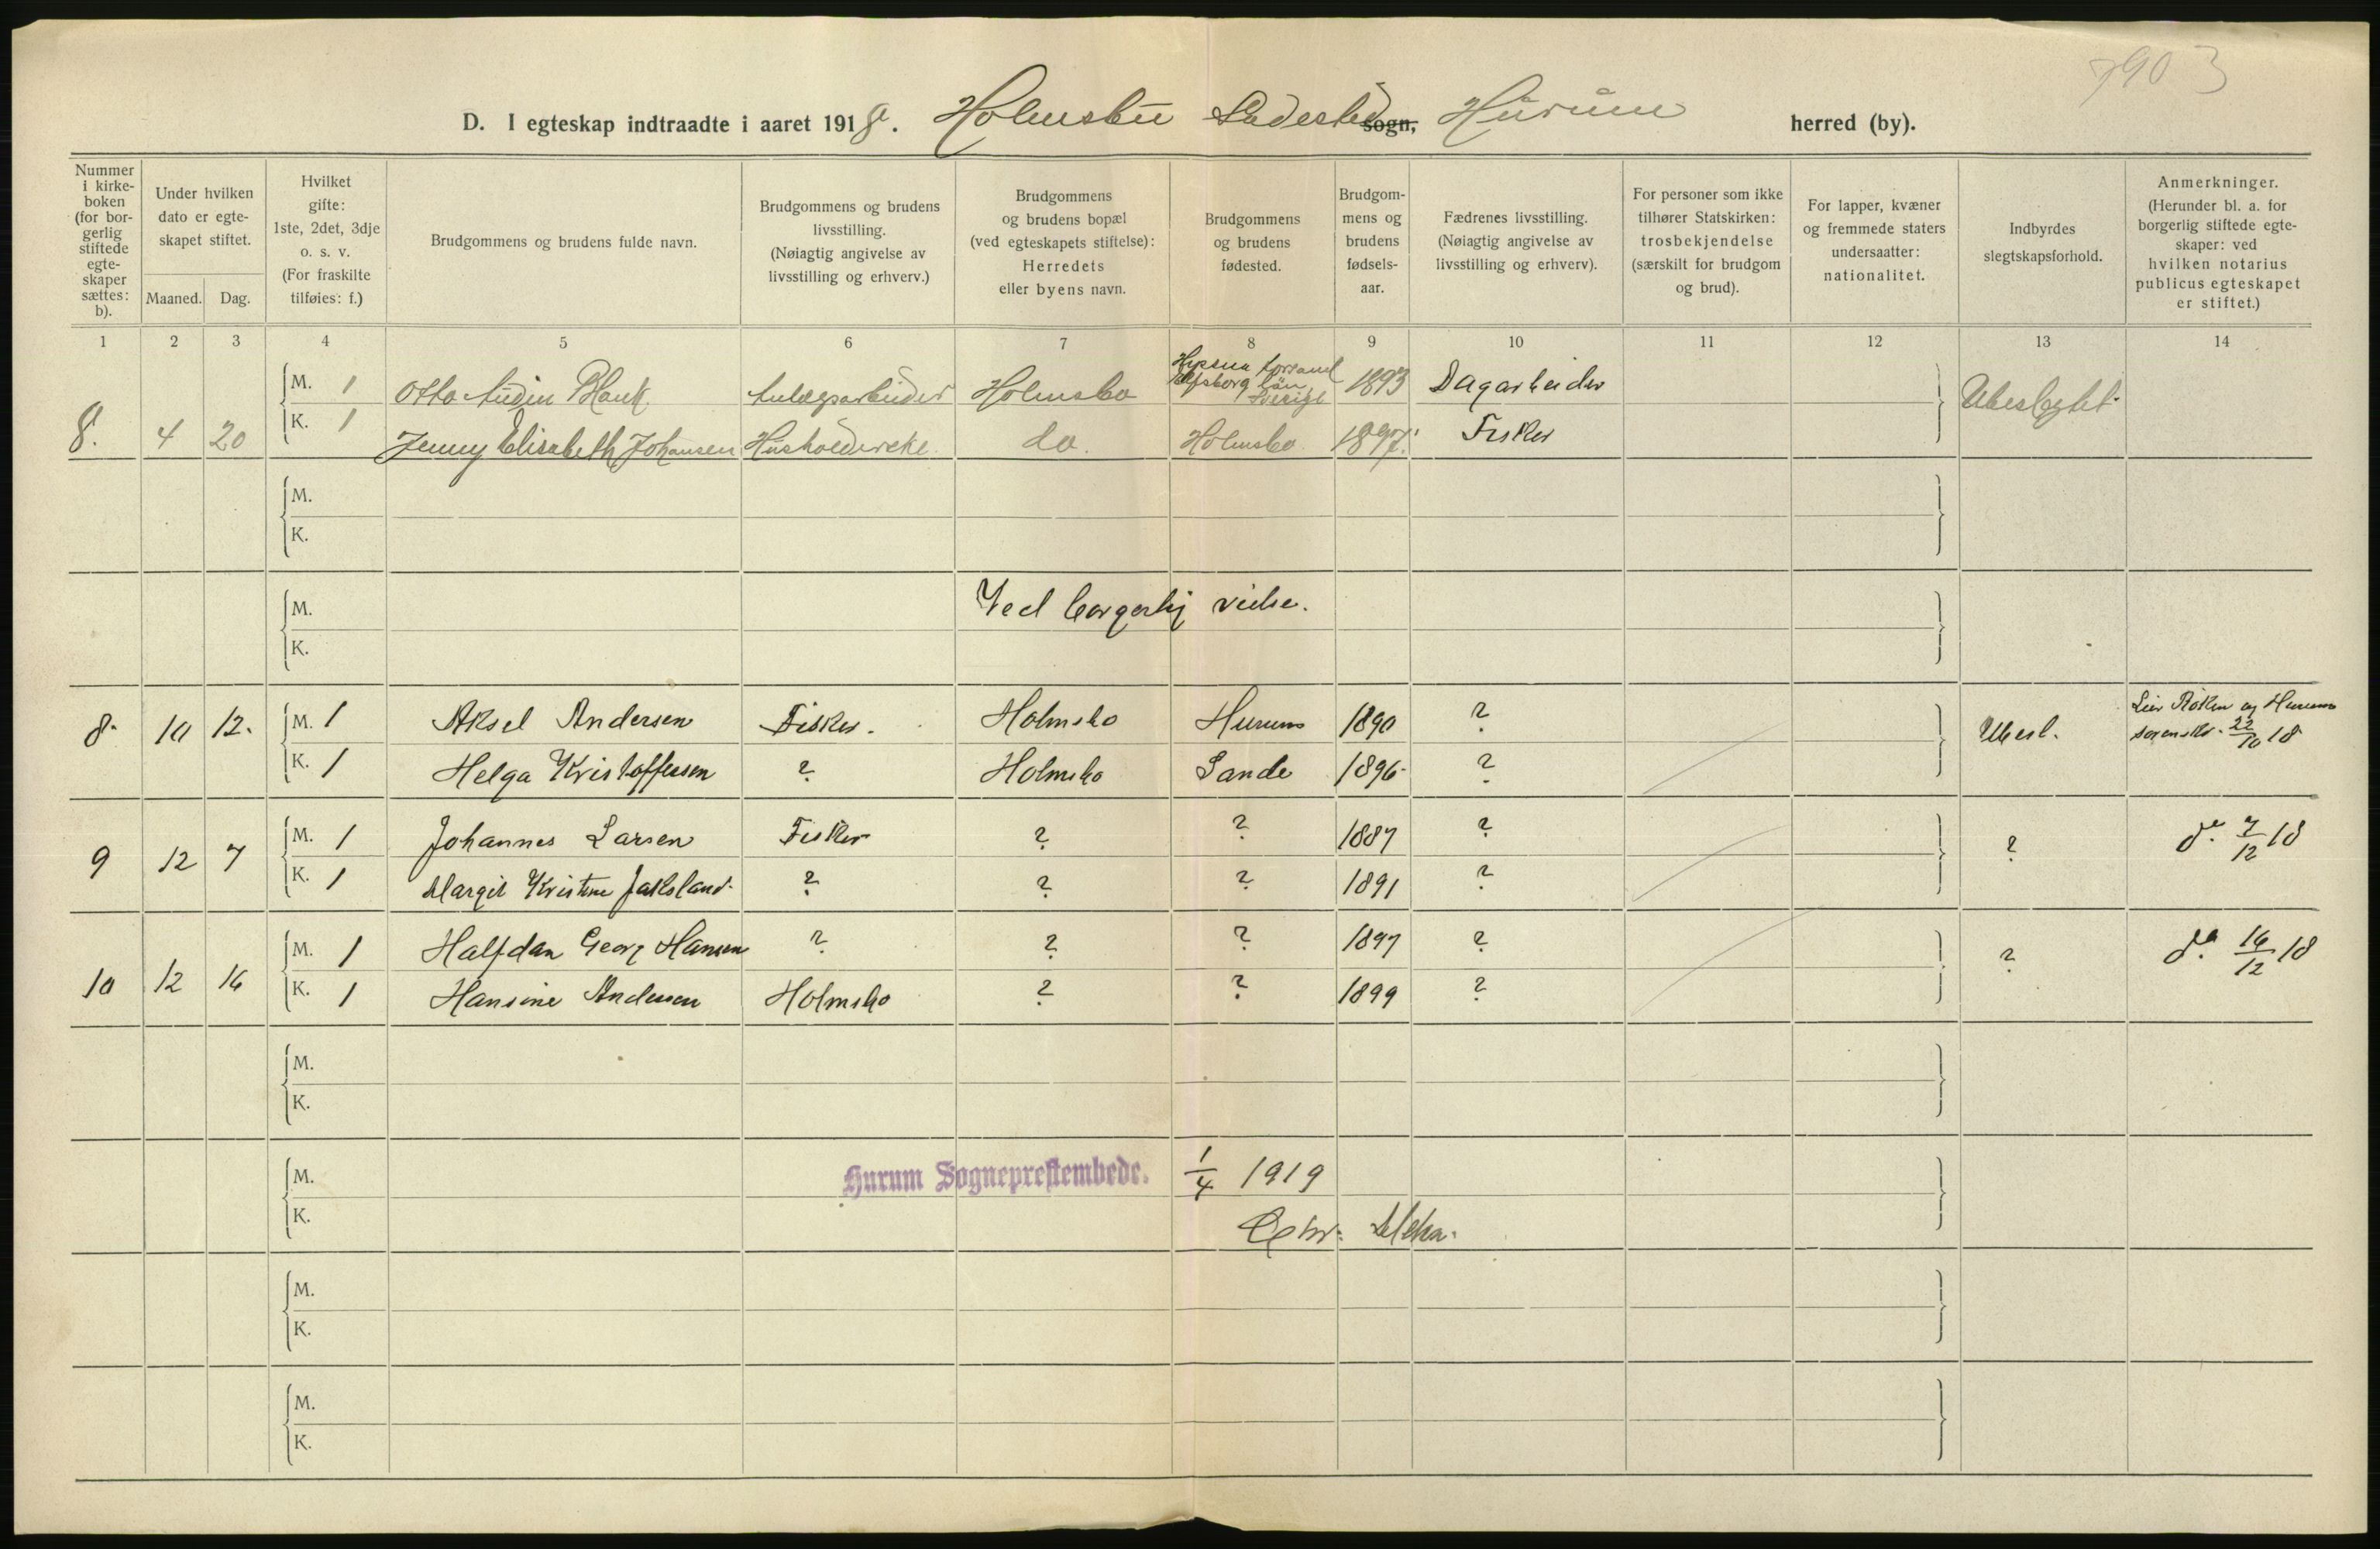 7903
D. I egteskap indtraadte i aaret 1918. Holmsbu Ladested sogn, Hurum herred (by).
Nummer i kirke-boken (for bor-gerlig stiftede egte-skaper sættes: b).
Under hvilken dato er egte-skapet stiftet.
Maaned. Dag.
Hvilket gifte: 1ste, 2det, 3dje o. s. v. (For fraskilte tilføies: f.)
Brudgommens og brudens fulde navn.
Brudgommens og brudens livsstilling. (Nøiagtig angivelse av livsstilling og erhverv.)
Brudgommens og brudens bopæl (ved egteskapets stiftelse): Herredets eller byens navn.
Brudgommens og brudens fødested.
Brudgom-mens og brudens fødsels-aar.
Fædrenes livsstilling. (Nøiagtig angivelse av livsstilling og erhverv).
For personer som ikke tilhører Statskirken: trosbekjendelse (særskilt for brudgom og brud).
For lapper, kvæner og fremmede staters undersaatter: nationalitet.
Indbyrdes slegtskapsforhold.
Anmerkninger. (Herunder bl. a. for borgerlig stiftede egte-skaper: ved hvilken notarius publicus egteskapet er stiftet.)
1 2 3 4 5 6 7 8 9 10 11 12 13 14
M. 1 Otto Audin Blank Anlægsarbeider Holmsbo Elfsborg län Sverige 1893 Dagarbeider Ubeslegtet.
8. 4 20 K. 1 Jenny Elisabeth Johansen do. Holmsbo. 1897. Fisker
M.
K.
M. Ved borgerlig vielse.
K.
8. 10 12. M. 1 Aksel Andersen Fisker. Holmsbo Hurum 1890 ? Ubesl. Lier Røken og Hurum sorenskr. 22/10 18
K. 1 Helga Kristoffersen ? Holmsbo Sande 1896. ?
9 12 7 M. 1 Johannes Larsen Fisker ? ? 1887 ? ? do. 7/12 18
K. 1 Margit Kristine ? ? ? 1891 ?
10 12 16 M. 1 Halfdan Georg Hansen ? ? ? 1897 ? ? do. 16/12 18
K. 1 Hansine Andersen Holmsbo ? ? 1899 ?
M.
K.
M. Hurum Sogneprestembede. 1/4 1919
K. Chr.
M.
K.
M.
K.